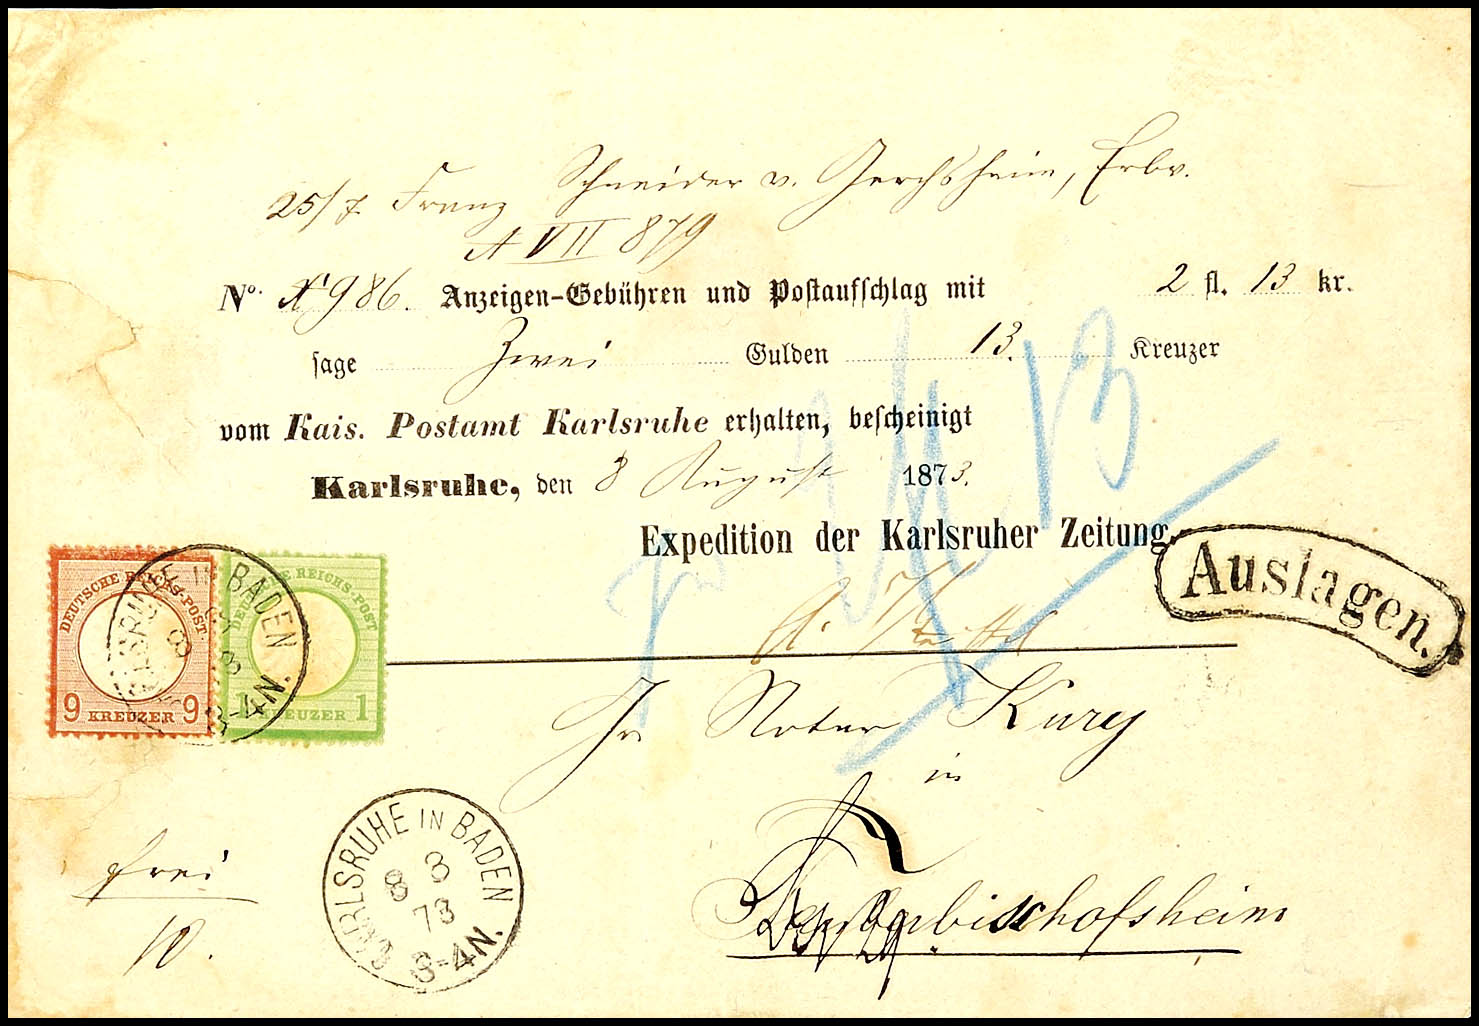 25/7 Franz Schneider v. Gerchsheim, Erbv.
A VII 879
No. 986. Anzeigen-Gebühren und Postaufschlag mit 2 fl. 13 kr.
sage Zwei Gulden 13. Kreuzer
vom Kais. Postamt Karlsruhe erhalten, bescheinigt
Karlsruhe, den 8 August 1873.
Expedition der Karlsruher Zeitung.
Auslagen.
DEUTSCHE REICHS-POST
9 KREUZER 9
DEUTSCHE REICHS-POST
KREUZER 1
KARLSRUHE IN BADEN
8 8
3-4N.
2 13
Hr Notar Kury
in
Tauberbischofsheim
frei
10.
KARLSRUHE IN BADEN
8 8
73
3-4N.